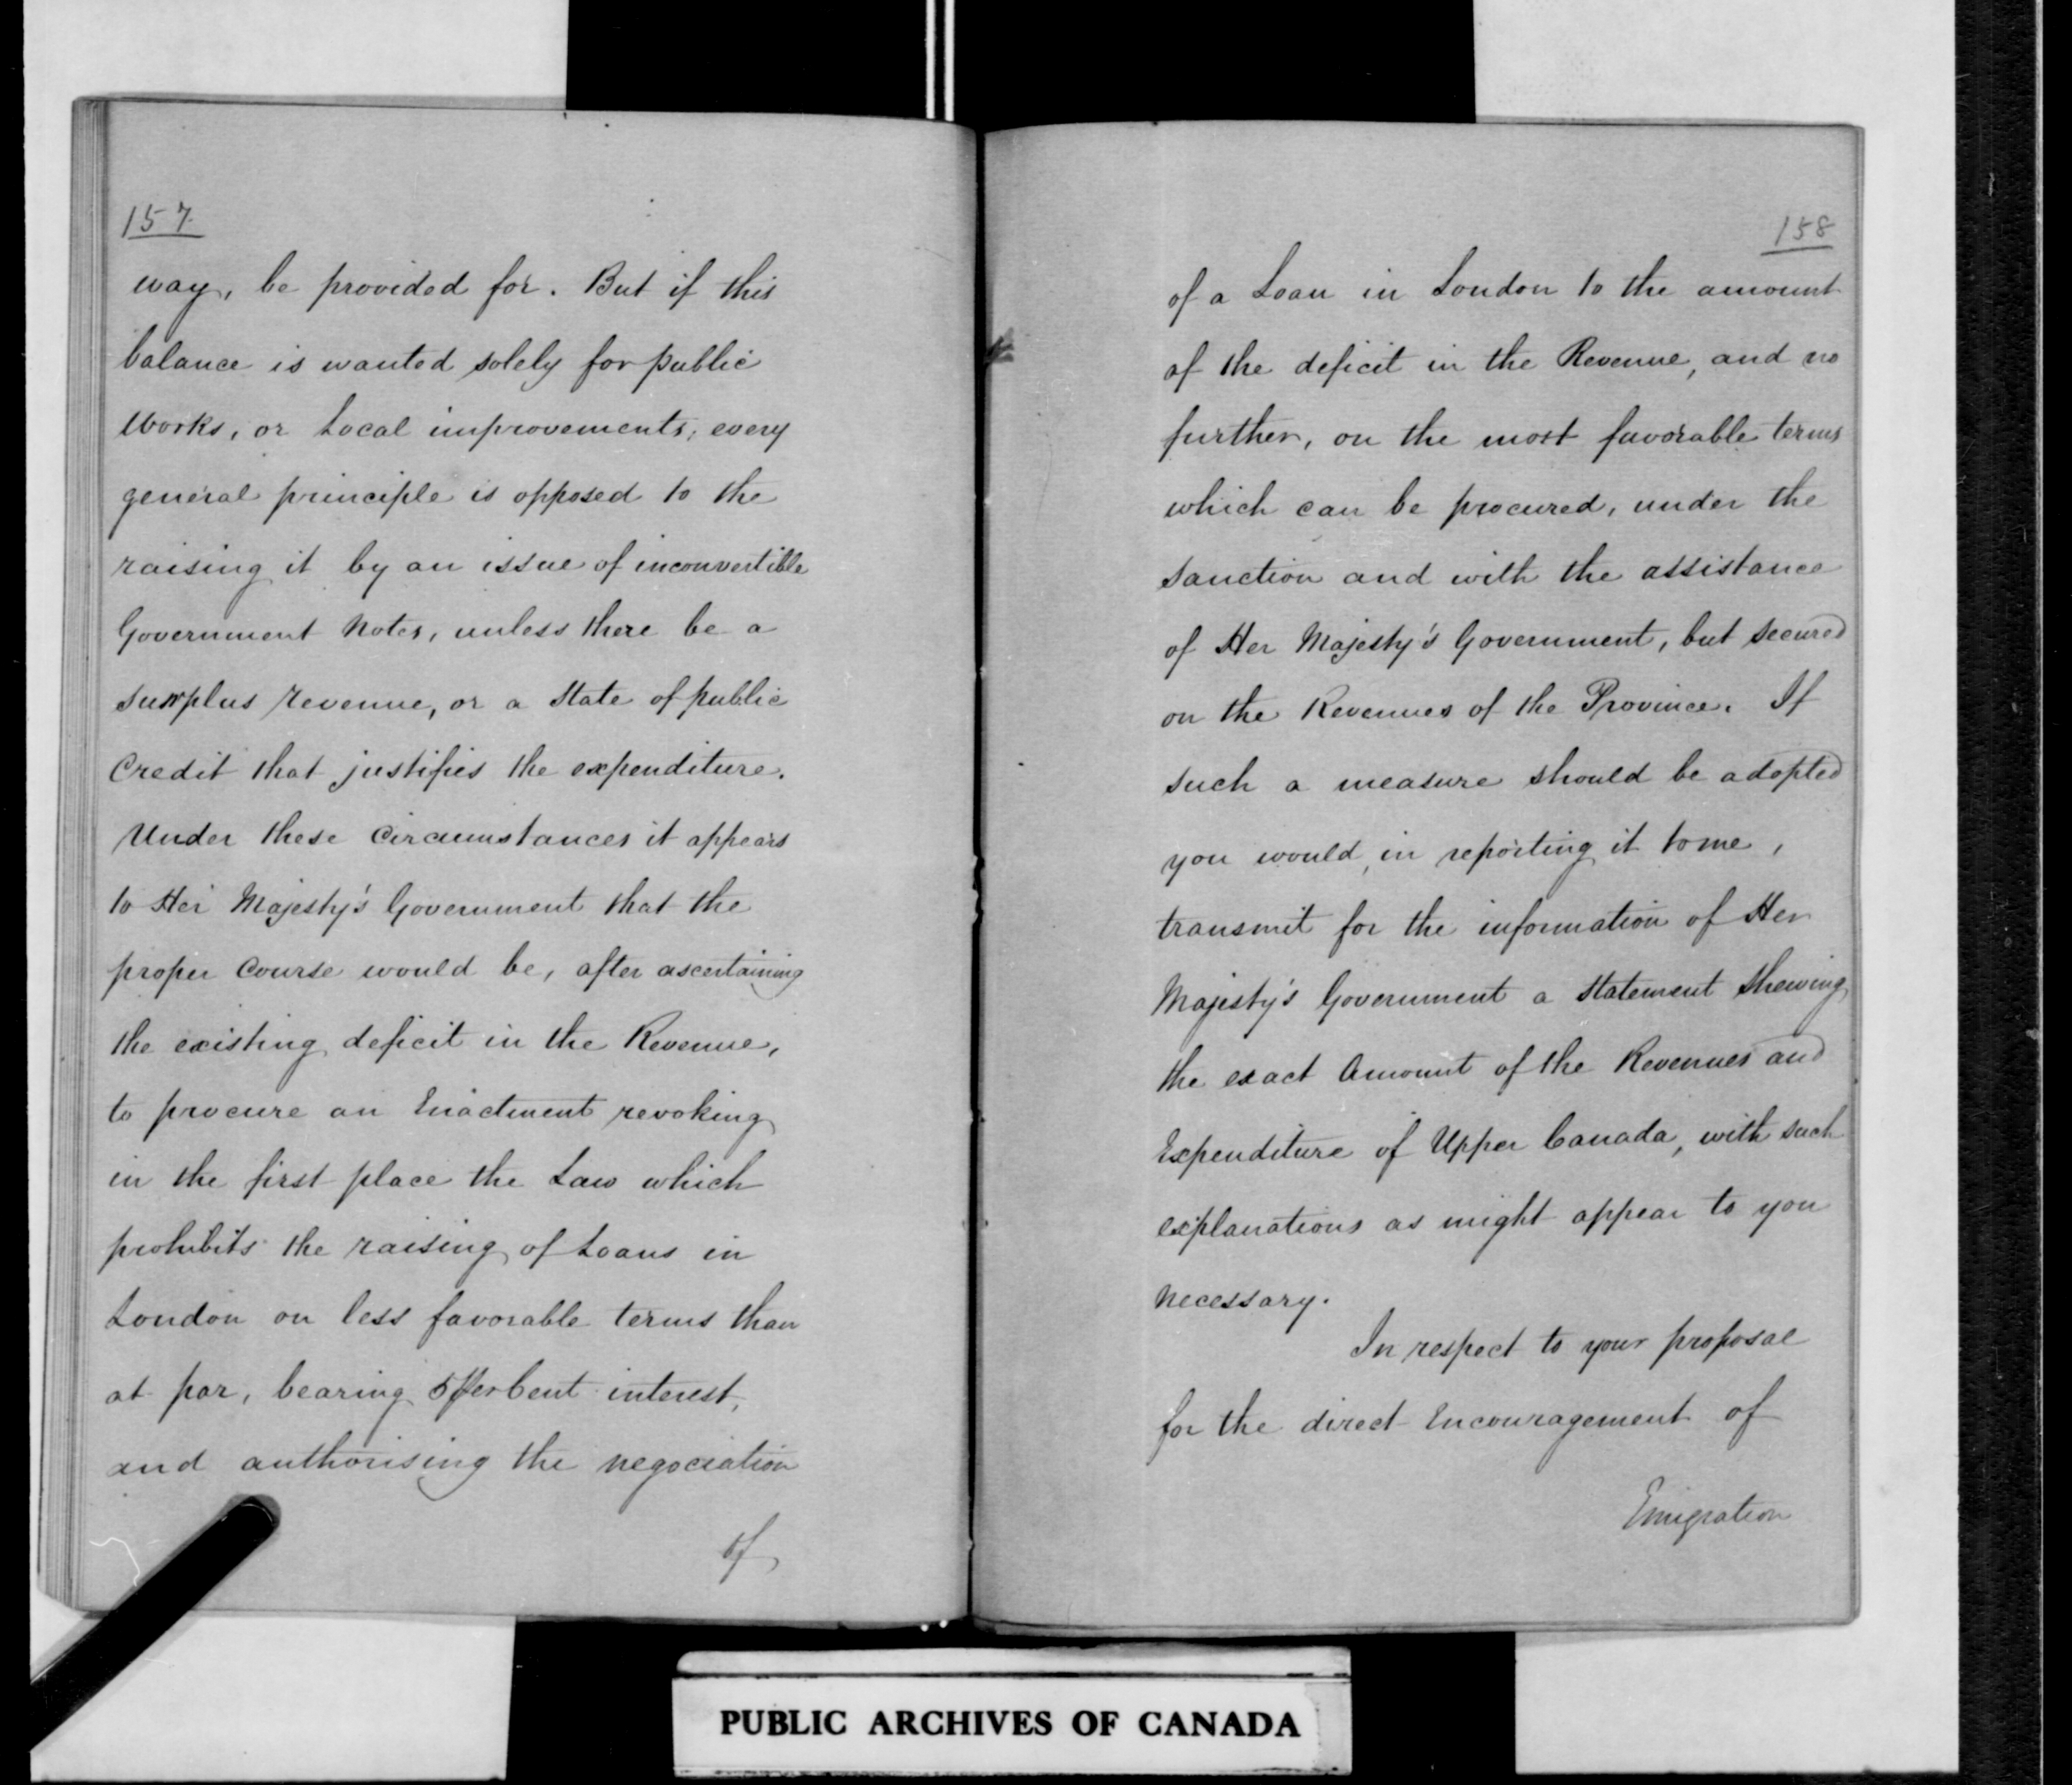 157
way, be provided for. But if this
balance is wanted solely for public
Works, or Local improvements, every
general principle is opposed to the
raising it by an issue of inconvertible
Government Notes, unless there be a
surplus revenue, or a State of public
Credit that justifies the expenditure.
Under these Circumstances it appears
to Her Majesty's Government that the
proper Course would be, after ascertaining
the existing deficit in the Revenue,
to procure an Enactment revoking
in the first place the Law which
prohibits the raising of Loans in
London on less favorable terms than
at par, bearing 5 per Cent interest,
and authorising the negociation
of
158
of a Loan in London to the amount
of the deficit in the Revenue, and no
further, on the most favorable terms
which can be procured, under the
sanction and with the assistance
of Her Majesty's Government, but secured
on the Revenues of the Province. If
such a measure should be adopted
you would, in reporting it to me,
transmit for the information of Her
Majesty's Government a statement shewing
the exact Amount of the Revenues and
Expenditure of Upper Canada, with such
explanations as might appear to you
necessary.
In respect to your proposal
for the direct Encouragement of
Emigration
PUBLIC ARCHIVES OF CANADA